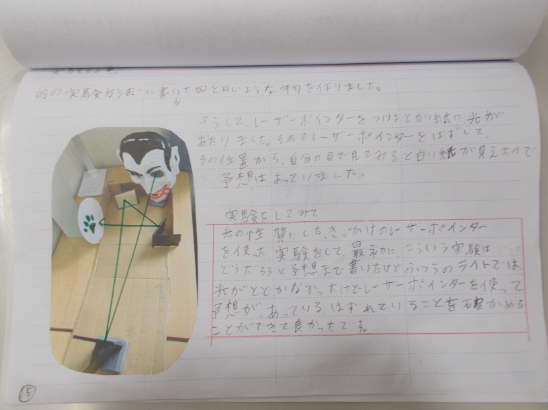 前の実験の方法に書いた図と同じような物を作りました。
そうして レーザーポインターをつけると白い紙に光が
あたりました。それでレーザーポインターをはずして、
その位置から、自分の目で見てみると白い紙が見えたので
予想はあっていました。
実験をしてみて
光の性質にしたきっかけのレーザーポインター
を使った実験をして、最初に、こういう実験は
どうだろうと予想まで書いたけどふつうのライトでは、
光がとどかなかったけどレーザーポインターを使って
予想が、あっているはずれていることを確かめる
ことができて良かったです。
15